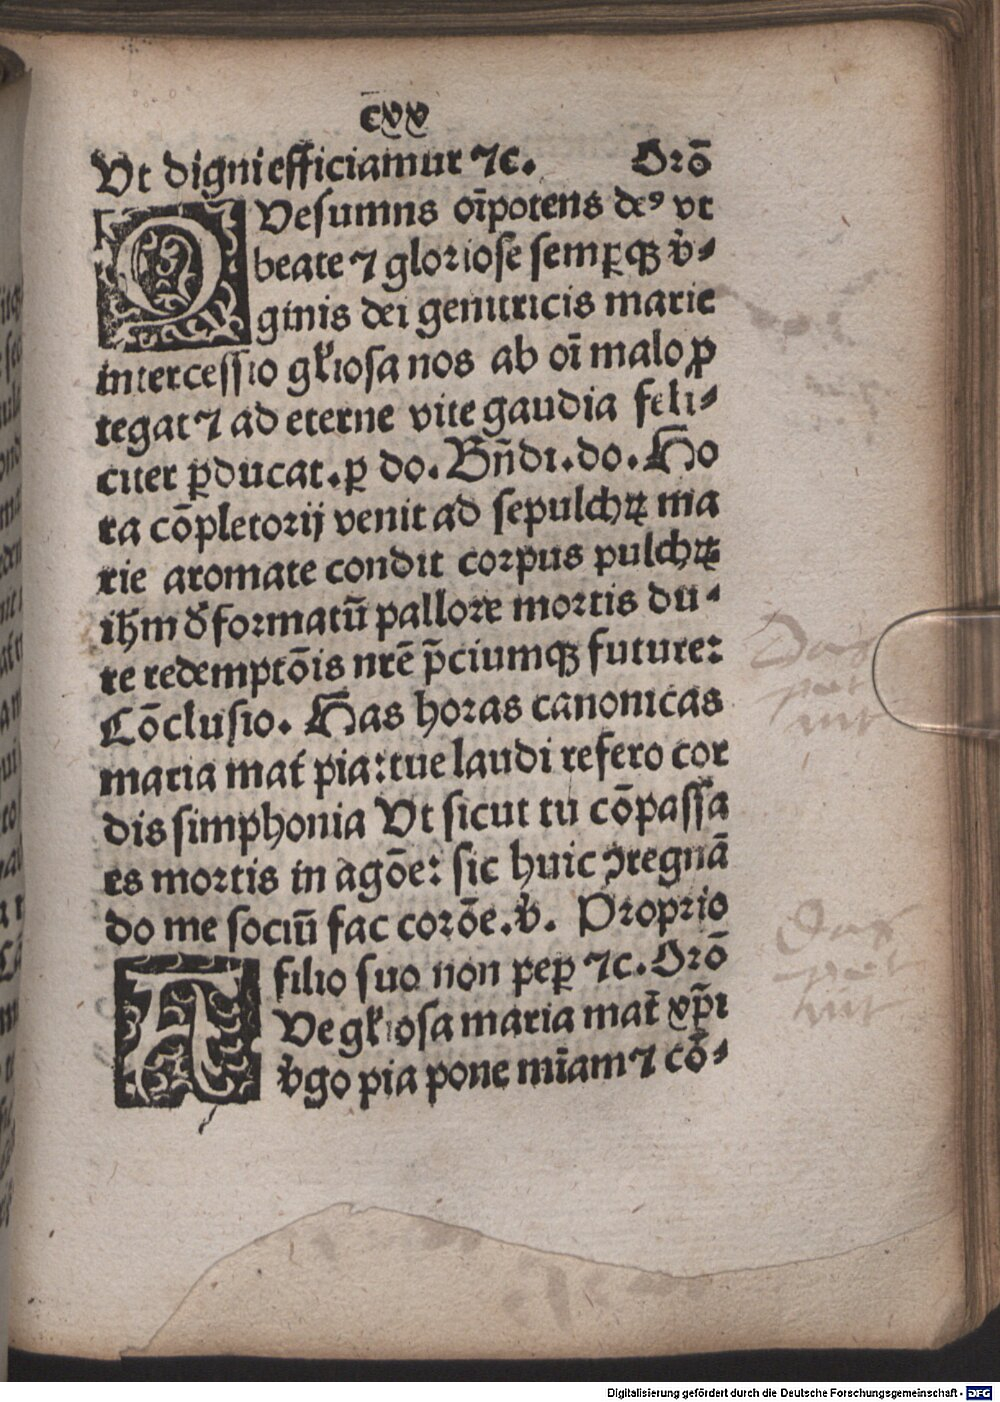 cxx
Ut digni efficiamur ⁊c. Orō
QUesumus oīpotens deꝰ vt
beate ⁊ gloriose semꝑqꝫ v̓-
ginis dei genitricis marie
intercessio gl̓iosa nos ab oī malo ꝓ
tegat ⁊ ad eterne vite gaudia feli-
citer ꝑducat. ꝑ do. Bn̄di. do. Ho
ra cōpletorij venit ad sepulchꝝ ma
rie aromate condit corpus pulchꝝ
ihm d̓formatū pallore mortis du-
re redemptōis nrē p̄ciumqꝫ future:
Cōclusio. Has horas canonicas
maria mat̓ pia: tue laudi refero cor
dis simphonia Ut sicut tu cōpassa
es mortis in agōe: sic huic ꝯregnā
do me sociū fac corōe. v̓. Proprio
filio suo non peꝑ ⁊c. Orō
AUe gl̓iosa maria mat̓ xp̄i
v̓go pia pone mīam ⁊ cō-
Das
pat
nit
Das
pat
nit
Digitalisierung gefördert durch die Deutsche Forschungsgemeinschaft - DFG